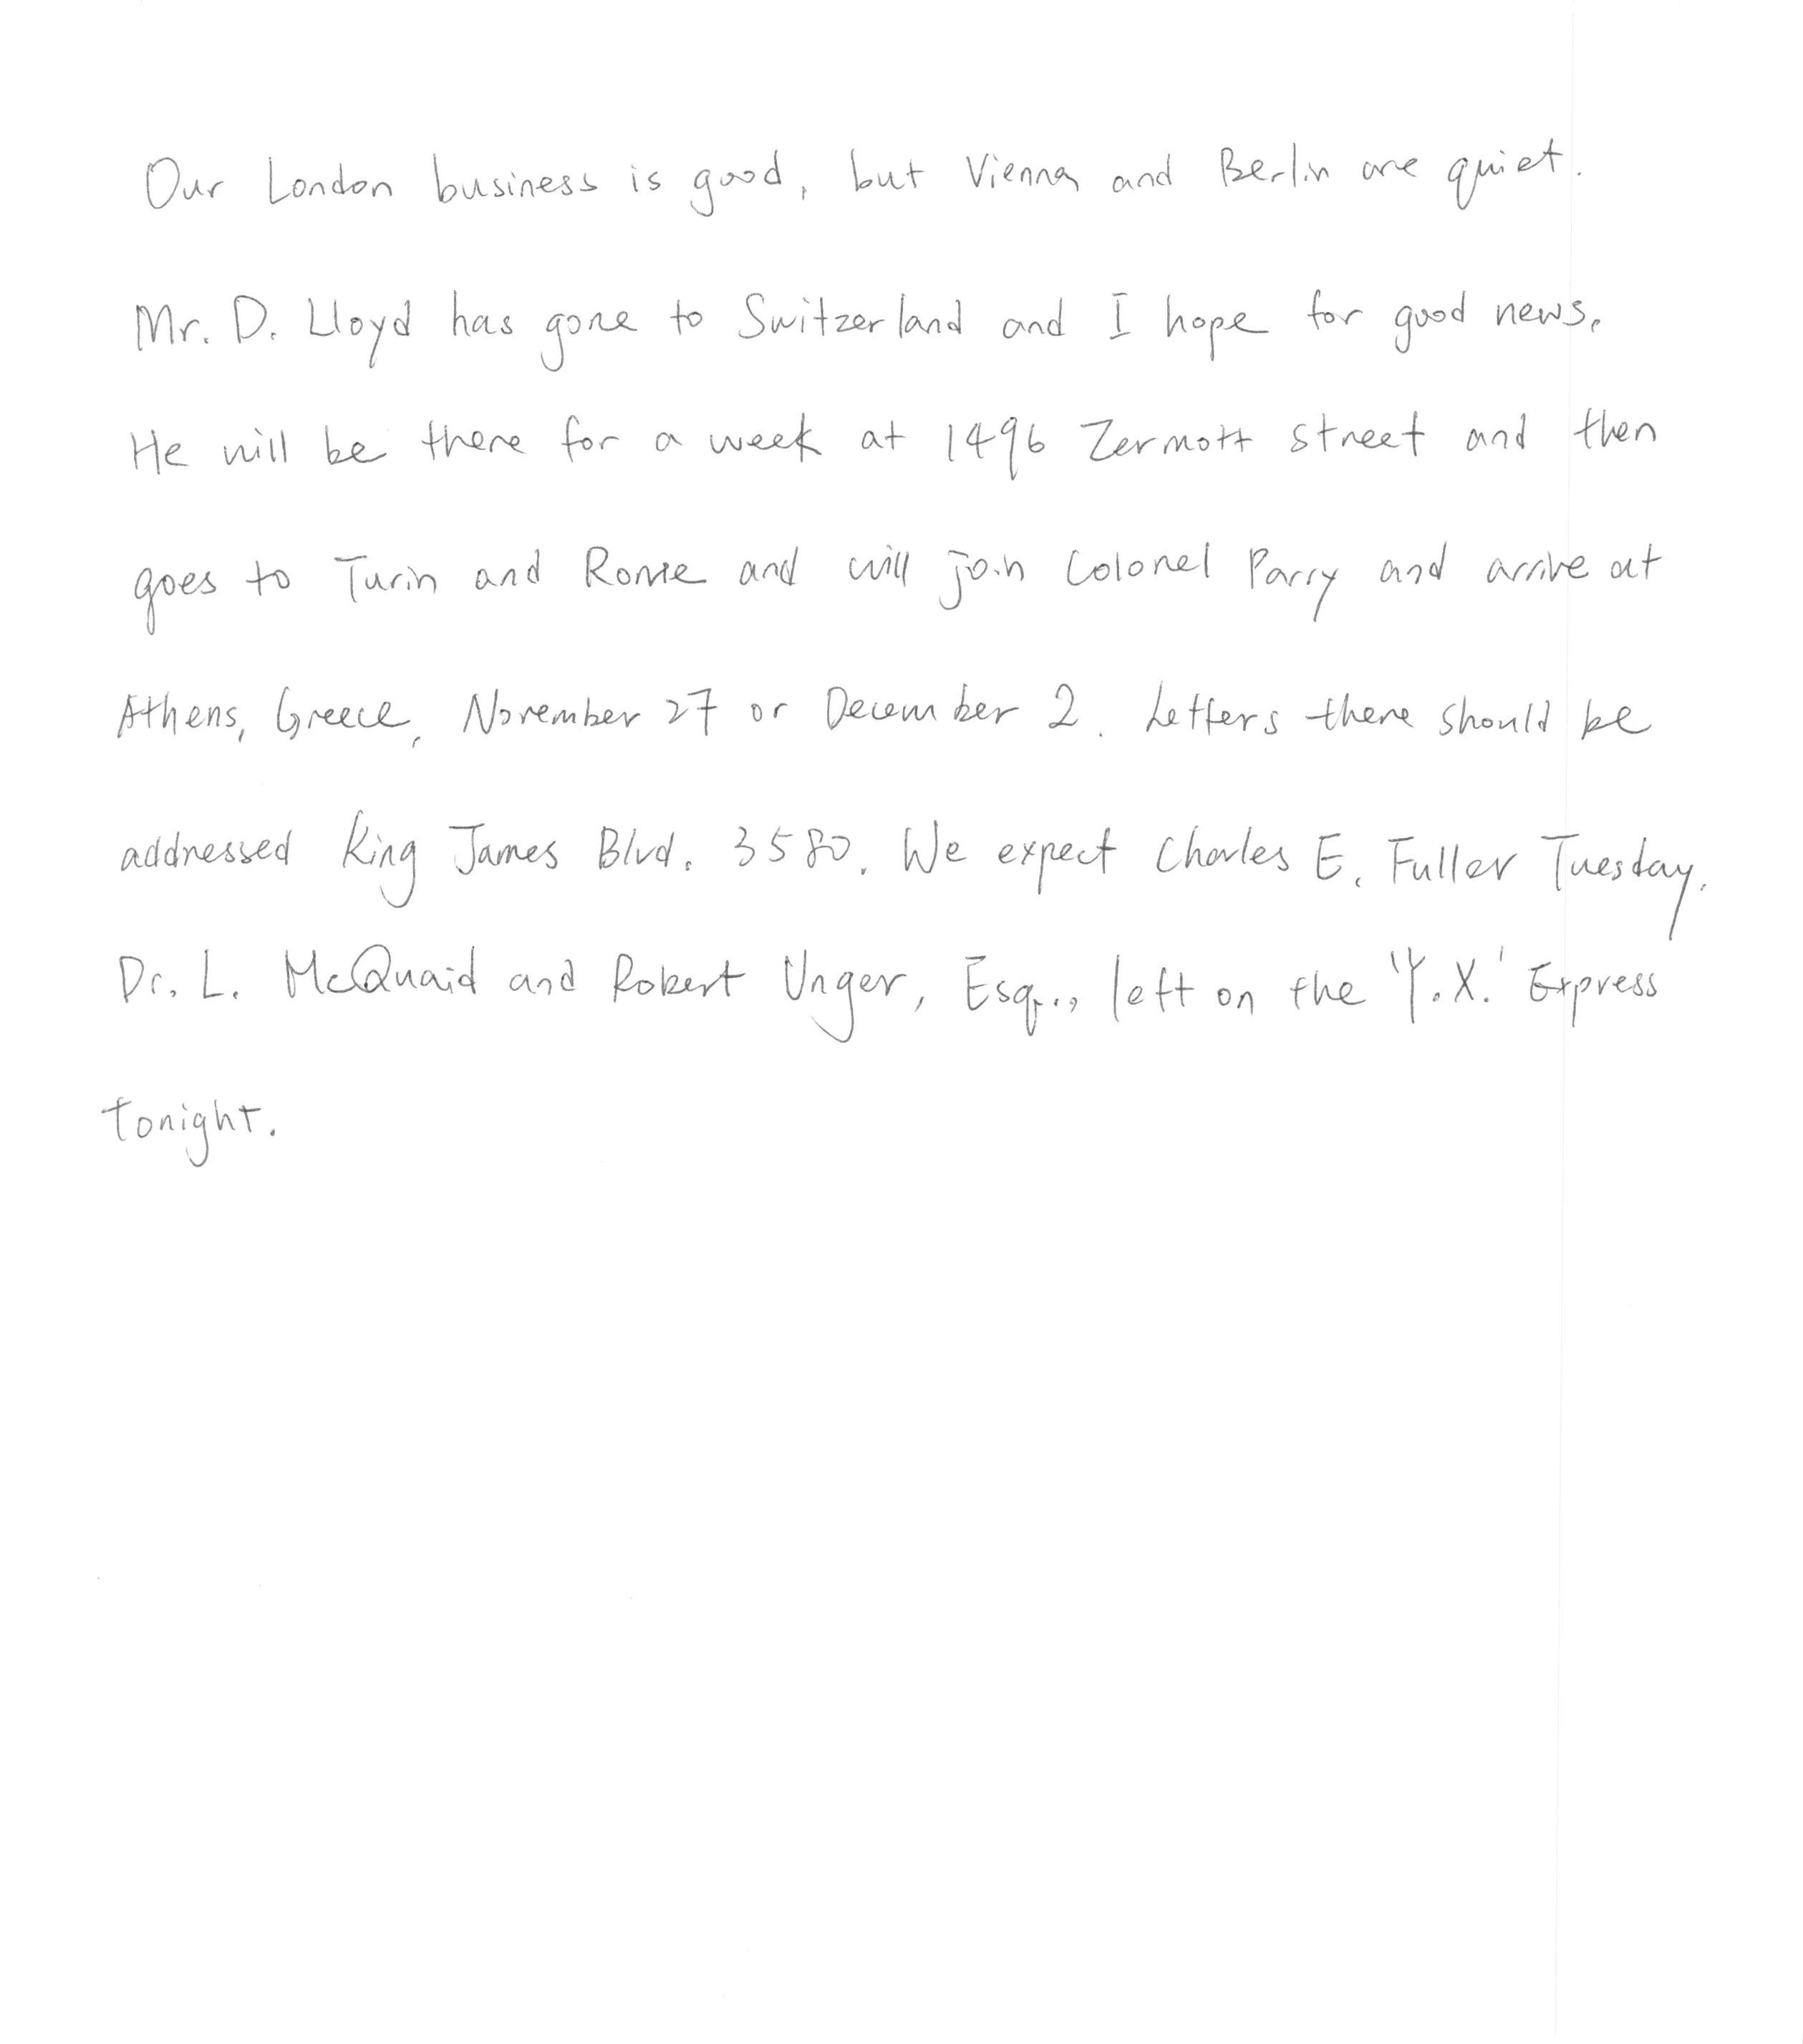 Our London business is good, but Vienna and Berlin are quiet.
Mr. D. Lloyd has gone to Switzerland and I hope for good news.
He will be there for a week at 1496 Zermott street and then
goes to Turin and Rome and will join Colonel Parry and arrive at
Athens, Greece, November 27 or December 2. Letters there should be
addressed King James Blvd. 3580. We expect Charles E. Fuller Tuesday.
Dr. L. McQuaid and Robert Unger, Esq.., left on the 'Y.X.' Express
tonight.